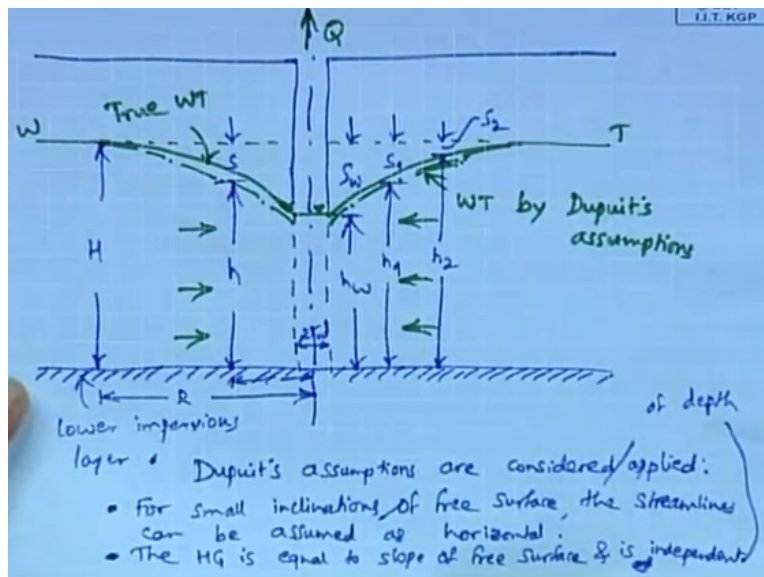 I.I.T. KGP
Q
True WT
W
T
S
Sw
S1
S2
WT by Dupuit's
assumptions
H
h
hw
h1
h2
R
lower impervious
layer
of depth
Dupuit's assumptions are considered/applied:
• For small inclinations of free surface, the streamlines
can be assumed as horizontal.
• The HG is equal to slope of free surface & is independent